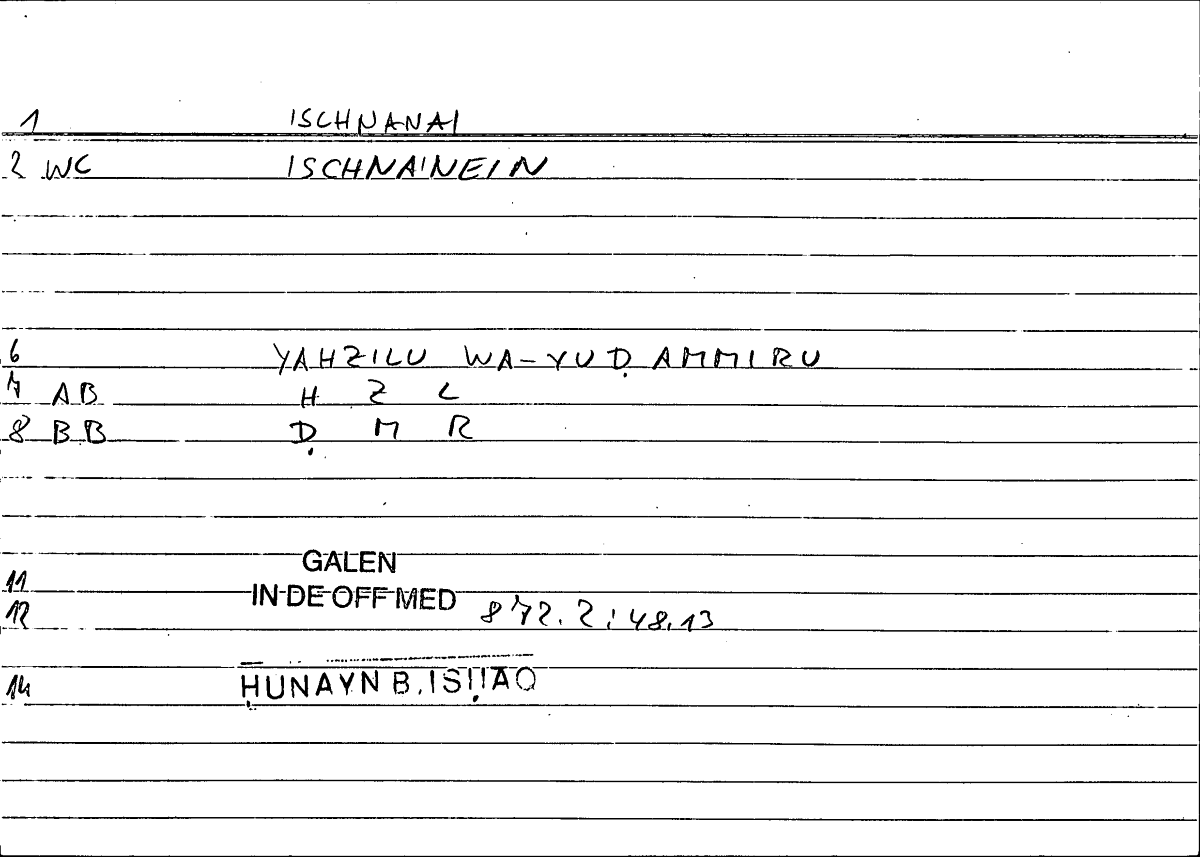 1 ISCHNANAI
2 WC ISCHNAINEIN
6 YAHZILU WA-YUḌAMMIRU
7 AB H Z L
8 BB Ḍ M R
GALEN
11
IN DE OFF MED
12 872.2:48.13
14 ḤUNAYN B. ISḤAQ